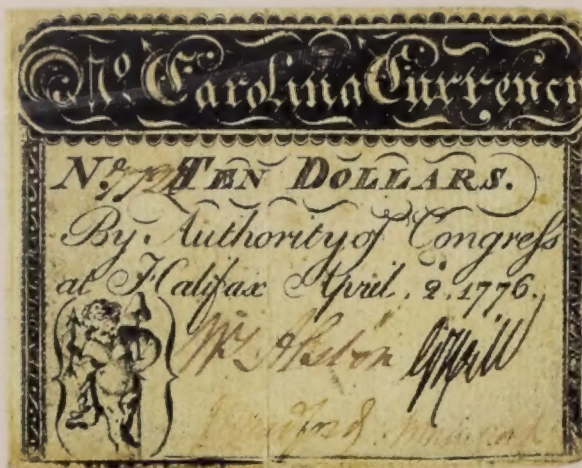 No. Carolina Currency
No. TEN DOLLARS.
By Authority of Congress
at Halifax April. 2. 1776.
Wm Alston